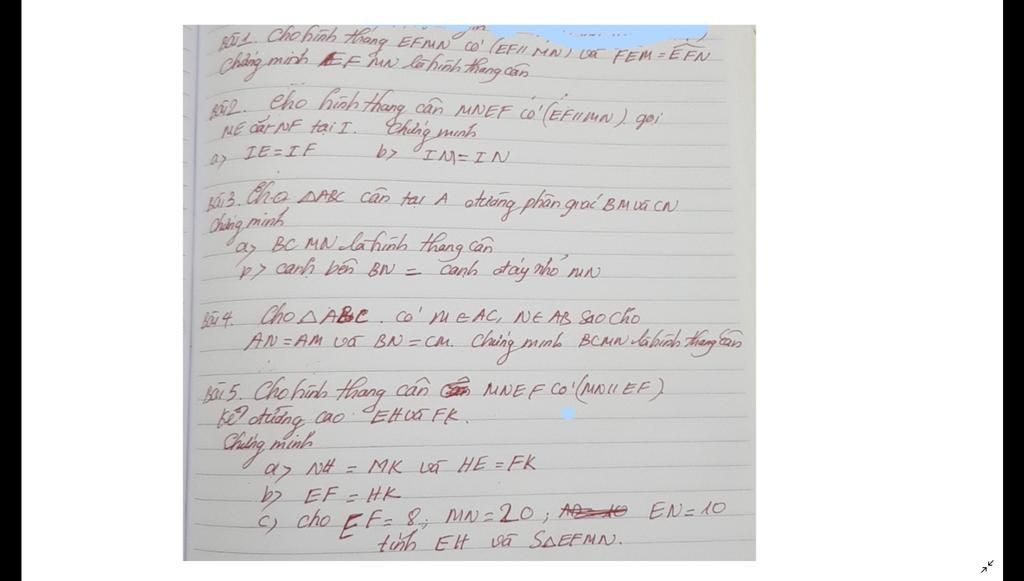 Bài 1. Cho hình thang EFMN có (EF // MN) và FEM = EFN
Chứng minh EFMN là hình thang cân
Bài 2. Cho hình thang cân MNEF có (EF // MN). gọi
ME cắt NF tại I. Chứng minh
a) IE = IF b) IM = IN
Bài 3. Cho △ABC cân tại A đường phân giác BM và CN
Chứng minh
a) BCMN là hình thang cân
b) cạnh bên BN = cạnh đáy nhỏ MN
Bài 4. Cho △ABC. có M ∈ AC, N ∈ AB sao cho
AN = AM và BN = CM. Chứng minh BCMN là hình thang cân
Bài 5. Cho hình thang cân MNEF có (MN // EF).
Kẻ đường cao EH và FK.
Chứng minh
a) NH = MK và HE = FK
b) EF = HK
c) cho EF = 8; MN = 20; EN = 10
tính EH và S△EFMN.